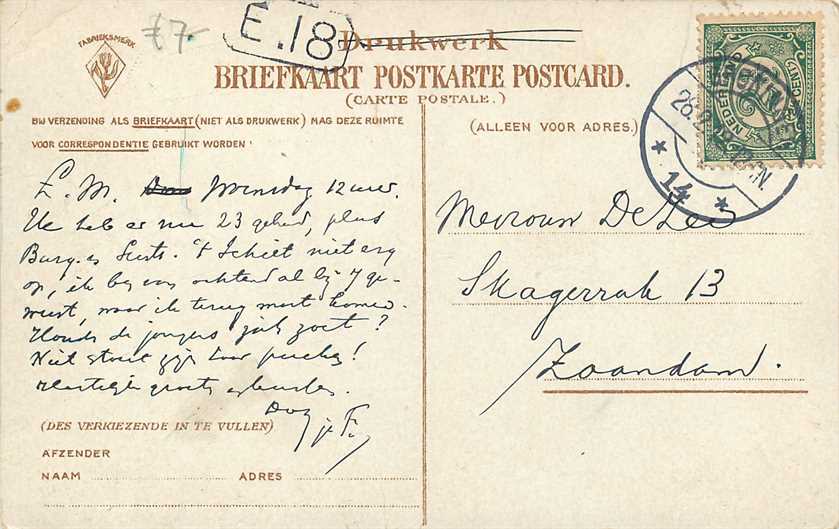 FABRIEKSMERK
£7-
E.18
Drukwerk
BRIEFKAART POSTKARTE POSTCARD.
(CARTE POSTALE.)
BIJ VERZENDING ALS BRIEFKAART (NIET ALS DRUKWERK) MAG DEZE RUIMTE
VOOR CORRESPONDENTIE GEBRUIKT WORDEN
(ALLEEN VOOR ADRES.)
NEDERLAND
14
L. M. Woensdag 12 uur.
We heb er nu 23 gehad, plus
Burg. en Secrts. 't Schiet niet erg
op, ik ben van ochtend al bij 7 ge-
weest, waar ik terug moet komen.
Houden de jongens zich zoet?
Niet stout zijn hoor
Hartelijke groeten
Dag
je F.
Mevrouw De Lee
Skagerrak 13
Zaandam.
(DES VERKIEZENDE IN TE VULLEN)
AFZENDER
NAAM ADRES